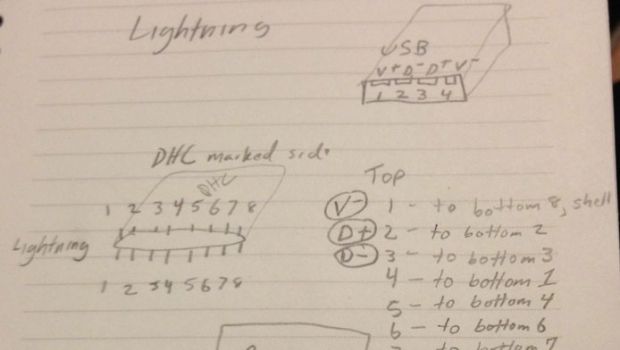 Lightning
USB
V+ D- D+ V-
1 2 3 4
DHC marked side
DHC
1 2 3 4 5 6 7 8
Lightning
1 2 3 4 5 6 7 8
Top
V- 1 - to bottom 8, shell
D+ 2 - to bottom 2
D- 3 - to bottom 3
4 - to bottom 1
5 - to bottom 4
6 - to bottom 6
to bottom 7